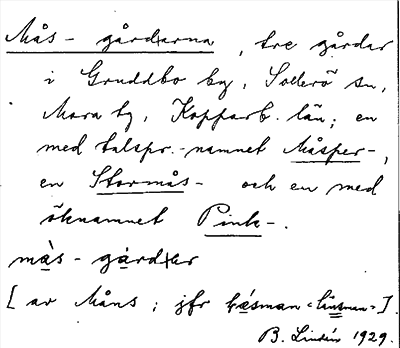 Mås- gårdarna, tre gårdar
i Gruddbo by, Sollerö sn,
Mora tg, Kopparb. län; en
med talspr.-namnet Måsper-,
en Stormås- och en med
öknamnet Pink-.
mås- gårdar
[av Måns; jfr låsman "länsman"].
B. Lindén 1929.